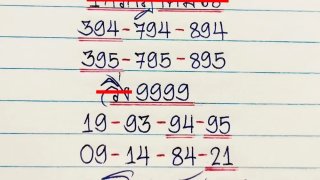 394-794-894
395-795-895
วิ่ง 9999
19-93-94-95
09-14-84-21